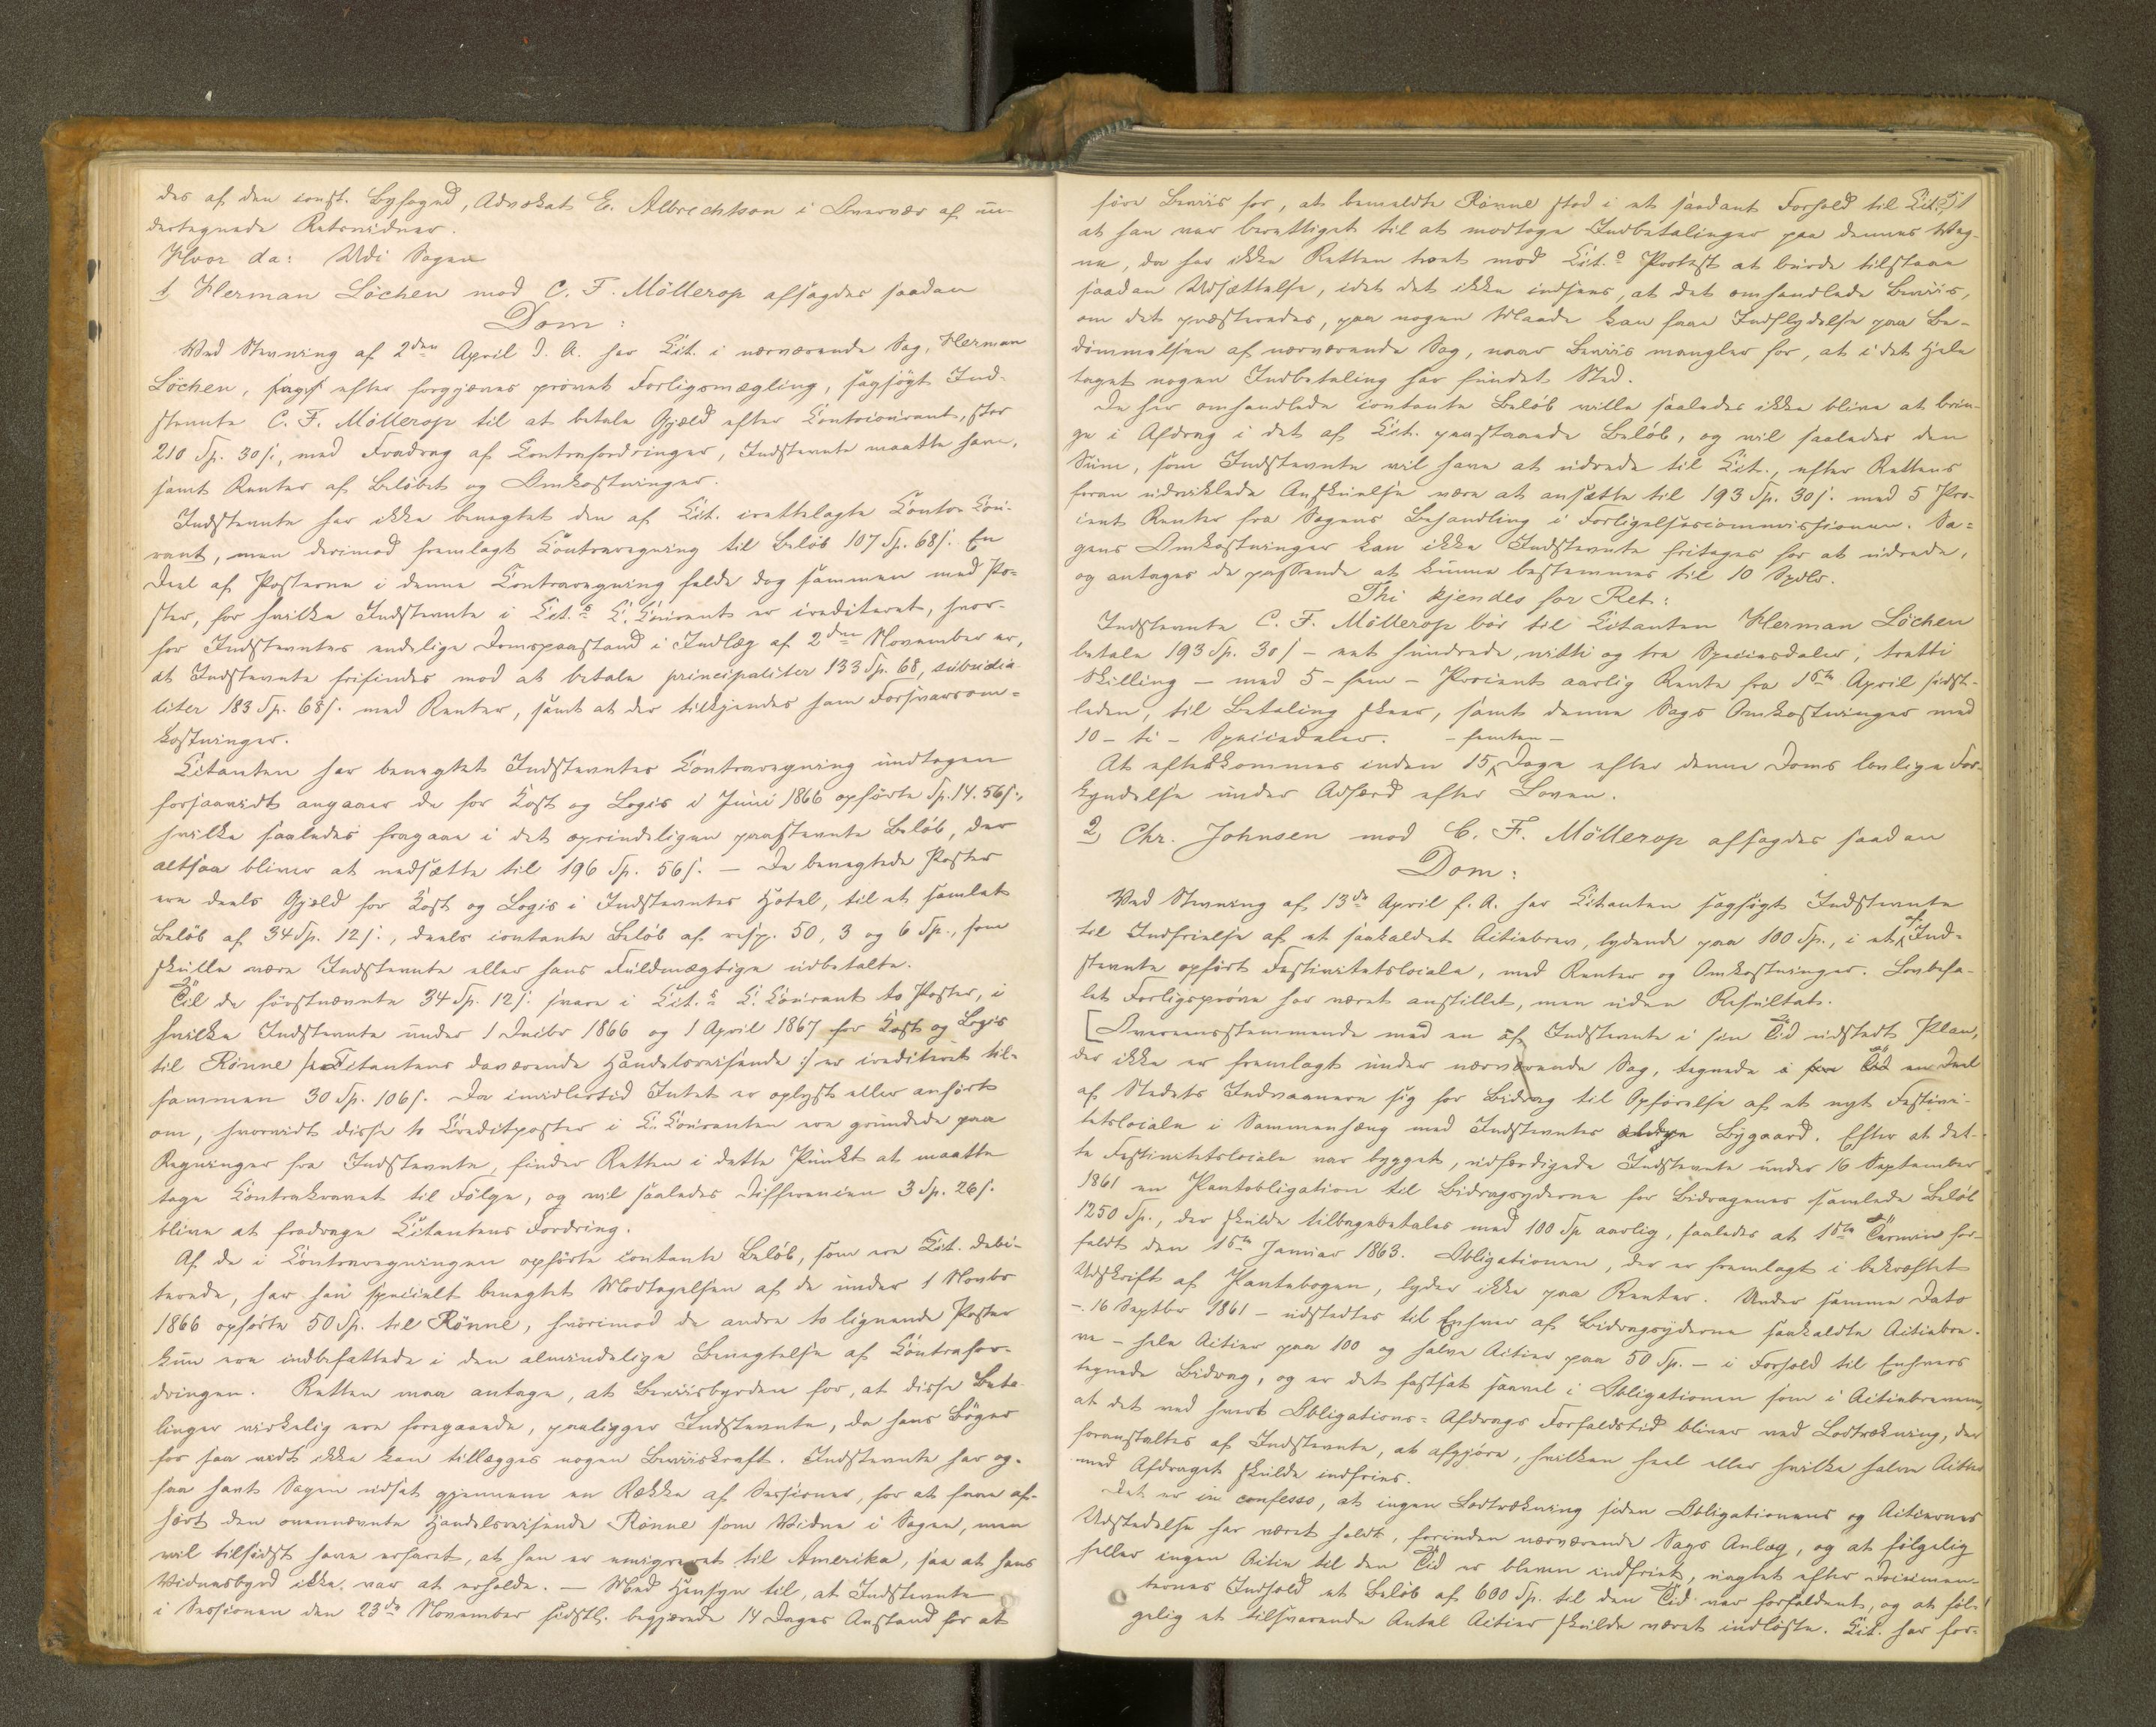 des af den const. Byfoged, Advokat E. Albrechtson i Overvær af un-
dertegnede Retsvidner.
Hvor da: Udi Sagen
1 Herman Löchen mod C. F. Möllerop afsagdes saadan
Dom:
Ved Stevning af 2den April d. A. har Cit. i nærværende Sag, Herman
Löchen, efter forgjæves prøvet Forligsmægling, sagsögt Ind-
stevnte C. F. Möllerop til at betale Gjæld efter Contocourant, stor
210 Sp. 30 s., med Fradrag af Contrafordringer, Indstevnte maatte have,
samt Renter af Beløbet og Omkostninger.
Indstevnte har ikke benegtet den af Cit. irettelagte Conto Cou-
rant, men derimod fremlagt Contraregning til Beløb 107 Sp. 68 s. En
Deel af Posterne i denne Contraregning falde dog sammen med Po-
ster, for hvilke Indstevnte i Cit.s C. Courant er crediteret, hvor-
for Indstevntes endelige Domspaastand i Indlæg af 2den November er,
at Indstevnte frifindes mod at betale principaliter 133 Sp. 68, subsidia-
liter 183 Sp. 68 s. med Renter, samt at der tilkjendes ham Forsvarsom-
kostninger.
Citanten har benegtet Indstevntes Contraregning undtagen
forsaavidt angaaer de for Kost og Logis i Juni 1866 opførte Sp. 14. 56 s.,
hvilke saaledes fragaae i det oprindeligen paastevnte Beløb, der
altsaa bliver at nedsætte til 196 Sp. 56 s. - De benegtede Poster
ere deels Gjæld for Kost og Logis i Indstevntes Hotel, til et samlet
Beløb af 34 Sp. 12 s., deels contante Beløb af resp. 50, 3 og 6 Sp., som
skulle være Indstevnte eller hans Fuldmægtige udbetalte.
Til de førstnævnte 34 Sp. 12 s. svare i Cit.s C. Courant to Poster, i
hvilke Indstevnte under 1 Decbr 1866 og 1 April 1867 for Kost og Logis
til Rönne /: Citantens daværende Handelsreisende :/ er crediteret til-
sammen 30 Sp. 106 s. Da imidlertid Intet er oplyst eller anført
om, hvorvidt disse to Creditposter i C. Couranten ere grundede paa
Regninger fra Indstevnte, finder Retten i dette Punkt at maatte
tage Contrakravet til Følge, og vil saaledes Differencen 3 Sp. 26 s.
blive at fradrage Citantens Fordring.
Af de i Contraregningen opførte contante Beløb, som ere Cit. debi-
terede, har han specielt benegtet Modtagelsen af de under 1 Novbr
1866 opførte 50 Sp. til Rönne, hvorimod de andre to lignende Poster
kun ere indbefattede i den almindelige Benegtelse af Contrafor-
dringen. Retten maa antage, at Beviisbyrden for, at disse Beta-
linger virkelig ere foregaaede, paaligger Indstevnte, da hans Bøger
for saa vidt ikke kan tillægges nogen Beviiskraft. Indstevnte har og-
saa havt Sagen udsat gjennem en Række af Sessioner, for at faae af-
hørt den ovennævnte Handelsreisende Rönne som Vidne i Sagen, men
vil tilsidst have erfaret, at han er emigreret til Amerika, saa at hans
Vidnesbyrd ikke var at erholde. - Med Hensyn til, at Indstevnte
i Sessionen den 23de November sidstl. begjærede 14 Dages Anstand for at
føre Beviis for, at bemeldte Rönne stod i et saadant Forhold til Cit.,
at han var berettiget til at modtage Indbetalinger paa dennes Veg-
ne, da har ikke Retten troet mod Cit.s Protest at burde tilstaae
saadan Udsættelse, idet det ikke indsees, at det omhandlede Beviis,
om det præsteredes, paa nogen Maade kan faae Indflydelse paa Be-
dømmelsen af nærværende Sag, naar Beviis mangler for, at i det Hele
taget nogen Indbetaling har fundet Sted.
De her omhandlede contante Beløb ville saaledes ikke blive at brin-
ge i Afdrag i det af Cit. paastaaede Beløb, og vil saaledes den
Sum, som Indstevnte vil have at udrede til Cit., efter Rettens
foran udviklede Anskuelse være at ansætte til 193 Sp. 30 s. med 5 Pro-
cent Renter fra Sagens Behandling i Forligelsescommissionen. Sa-
gens Omkostninger kan ikke Indstevnte fritages for at udrede,
og antages de passende at kunne bestemmes til 10 Spdlr.
Thi kjendes for Ret:
Indstevnte C. F. Möllerop bör til Citanten Herman Löchen
betale 193 Sp. 30 s - eet hundrede, nitti og tre Speciesdaler, tretti
Skilling - med 5 - fem - Procents aarlig Rente fra 16de April sidst-
leden, til Betaling skeer, samt denne Sags Omkostninger med
10 - ti - Speciedaler. - femten -
At efterkommes inden 15 Dage efter denne Doms lovlige For-
kyndelse under Adfærd efter Loven.
2, Chr. Johnsen mod C. F. Möllerop afsagdes saadan
Dom:
Ved Stevning af 13de April f. A. har Citanten sagsøgt Indstevnte
til Indfrielse af et saakaldet Actiebrev, lydende paa 100 Sp., i et af Ind-
stevnte opført Festivitetslocale, med Renter og Omkostninger. Lovbefa-
let Forligsprøve har været anstillet, men uden Resultat.
[Overeensstemmende med en af Indstevnte i sin Tid udstedt Plan,
der ikke er fremlagt under nærværende Sag, tegnede i sin Tid en Deel
af Stedets Indvaanere sig for Bidrag til Opførelse af et nyt Festivi-
tetslocale i Sammenhæng med Indstevntes Bygaard. Efter at det-
te Festivitetslocale var bygget, udfærdigede Indstevnte under 16 September
1861 en Pantobligation til Bidragsyderne for Bidragenes samlede Beløb
1250 Sp., der skulde tilbagebetales med 100 Sp aarlig, saaledes at 1ste Termin for-
faldt den 15de Januar 1863. Obligationen, der er fremlagt i bekræftet
Udskrift af Pantebogen, lyder ikke paa Renter. Under samme Dato
- 16 Septbr 1861 - udstedtes til Enhver af Bidragsyderne saakaldte Actiebre-
ve - hele Actier paa 100 og halve Actier paa 50 Sp. - i Forhold til Enhvers
tegnede Bidrag, og er det fastsat saavel i Obligationen som i Actiebrevene,
at det ved hvert Obligations-Afdrags Forfaldstid bliver ved Lodtrækning, der
foranstaltes af Indstevnte, at afgjøre, hvilken heel eller hvilke halve Actier
med Afdraget skulde indfries.
Det er in confesso, at ingen Lodtrækning siden Obligationens og Actiernes
Udstedelse har været holdt, forinden nærværende Sags Anlæg, og at følgelig
heller ingen Actie til den Tid er bleven indfriet, uagtet efter Documen-
ternes Indhold et Beløb af 600 Sp. til den Tid var forfaldent, og at føl-
gelig et tilsvarende Antal Actier skulde været indløste. Cit. har for-